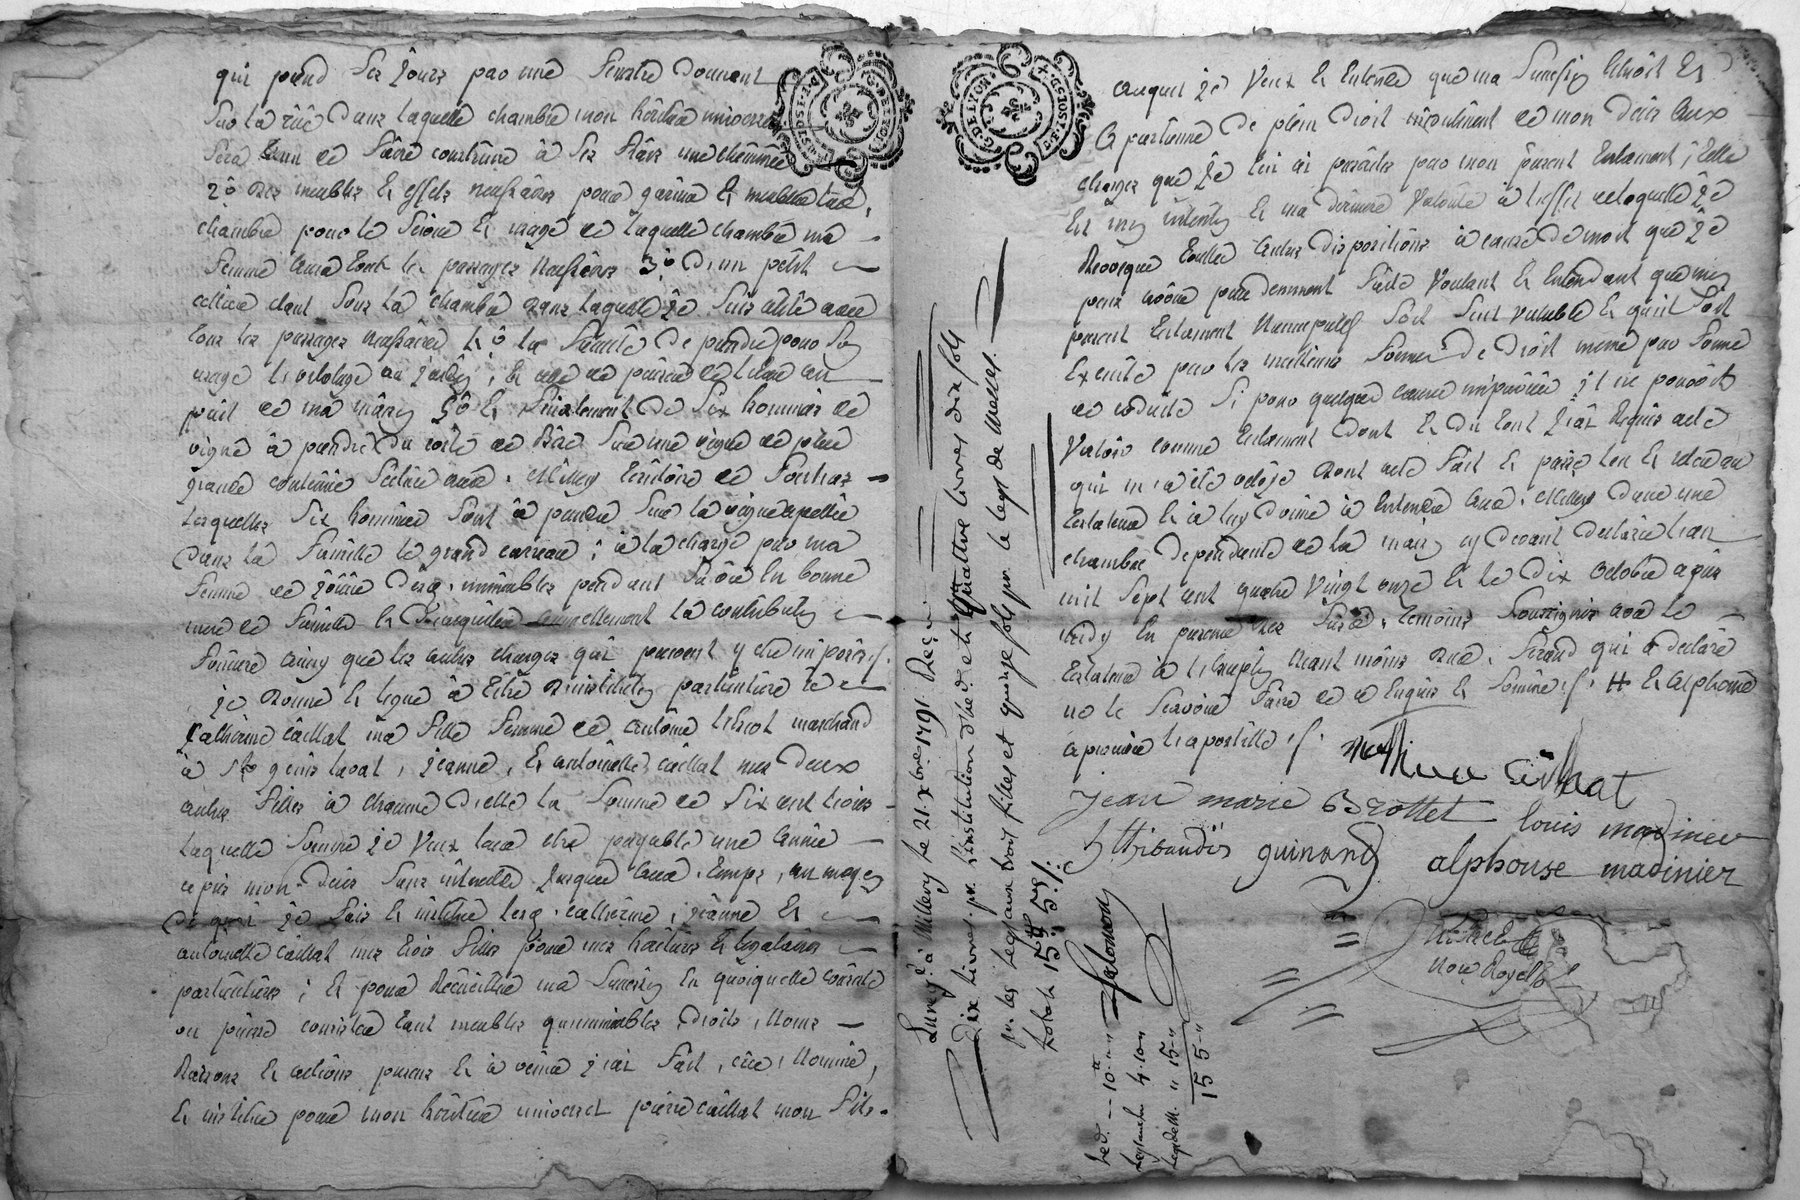 qui prend ses jours par une fenetre donnant
sur la rüe dans laquelle chambre mon héritier universel
sera tenu de faire construire à ses frais une cheminée
2º des meubles et effets necessaires pour garnir et meubler lad.
chambre pour le service et usage de laquelle chambre ma
femme aura tout les passages necessaires 3º d'un petit
cellier etant sous la chambre dans laquelle je suis alité avec
tous les passages necessaires 4º la faculté de prendre pour son
usage
puit de ma maison 5º et finalement de six hommées de
vigne à prendre du coté de bize sur une vigne de plus
grande contenüe scituée aud. Millery territoire de
lesquelles six hommées sont à prendre sur la vigne appellée
dans la famille le grand carreau ; à la charge par ma
femme de joüir desd. immeubles pendant sa vie en bonne
mere de famille et d'acquitter annuellement la contribution
fonciere ainsy que les autres charges qui peuvent y etre imposées.
je donne et legue à titre d'institution particuliere à
Catherine Caillat ma fille femme de Antoine marchand
à St genis laval, jeanne, et antoinette caillat mes deux
autres filles à chacune d'elle la somme de six cent livres
laquelle somme je veux leur etre payable une année
apres mon deces sans interets jusques aud. temps, au moyen
de quoi je fais et institue lesd. catherine, jeanne et
antoinette caillat mes trois filles pour mes heritieres et legataires
particulieres ; et pour recueillir ma succession en quoiquelle consiste
ou puisse consister tant meubles qu'immeubles, droits, noms
raisons et actions present et à venir j'ai fait, crée, nommé,
et institue pour mon héritier universel pierre caillat mon fils
G. DE LYON
G. DE LYON
auquel je veux et entends que ma succession echoit et
apartienne de plein droit incontinent de mon deces aux
charges que je lui ai prescrites par mon present testament, telle
est mon intention et ma derniere volonté à l'effet de laquelle je
revoque toutes autres dispositions à cause de mort que je
peux avoir precedemment faite voulant et entendant que mon
present testament nuncupatif soit seul valable et qu'il soit
executé par les meilleures formes de droit meme par forme
de codicile si pour quelque cause impreveüe il ne pouvoit
valoir comme testament dont et du tout j'ai requis acte
qui m'a eté octroyé dont acte fait et passé lu et relu au
testateur et à luy donné à entendre aud. Millery dans une
chambre dependante de la maison cy devant declarée l'an
mil sept cent quatre vingt onze et le dix octobre apres
midy en presence des temoins soussignés avec le
testateur à l'exception neant moins dud. Girand qui a declaré
ne le scavoir faire de ce enquis et sommé ./. et alphonse
apostille ./.
Mathieu Caillat
jean marie Brottet louis madinier
j thibaudier guinand alphonse madinier
Enreg.é à Millery le 21. Xbre 1791 Reçu
Dix livres pr. l'institution d'hed. et Quattre livres dix sols
pr. les legs aux trois filles et quinze sols pr. le legs de meubl.
total 15ᵗᵗ 5ˢ ./.
Salomon
hed. -- 10ᵗᵗ "
4. 10 "
" 15 "
15 5 "